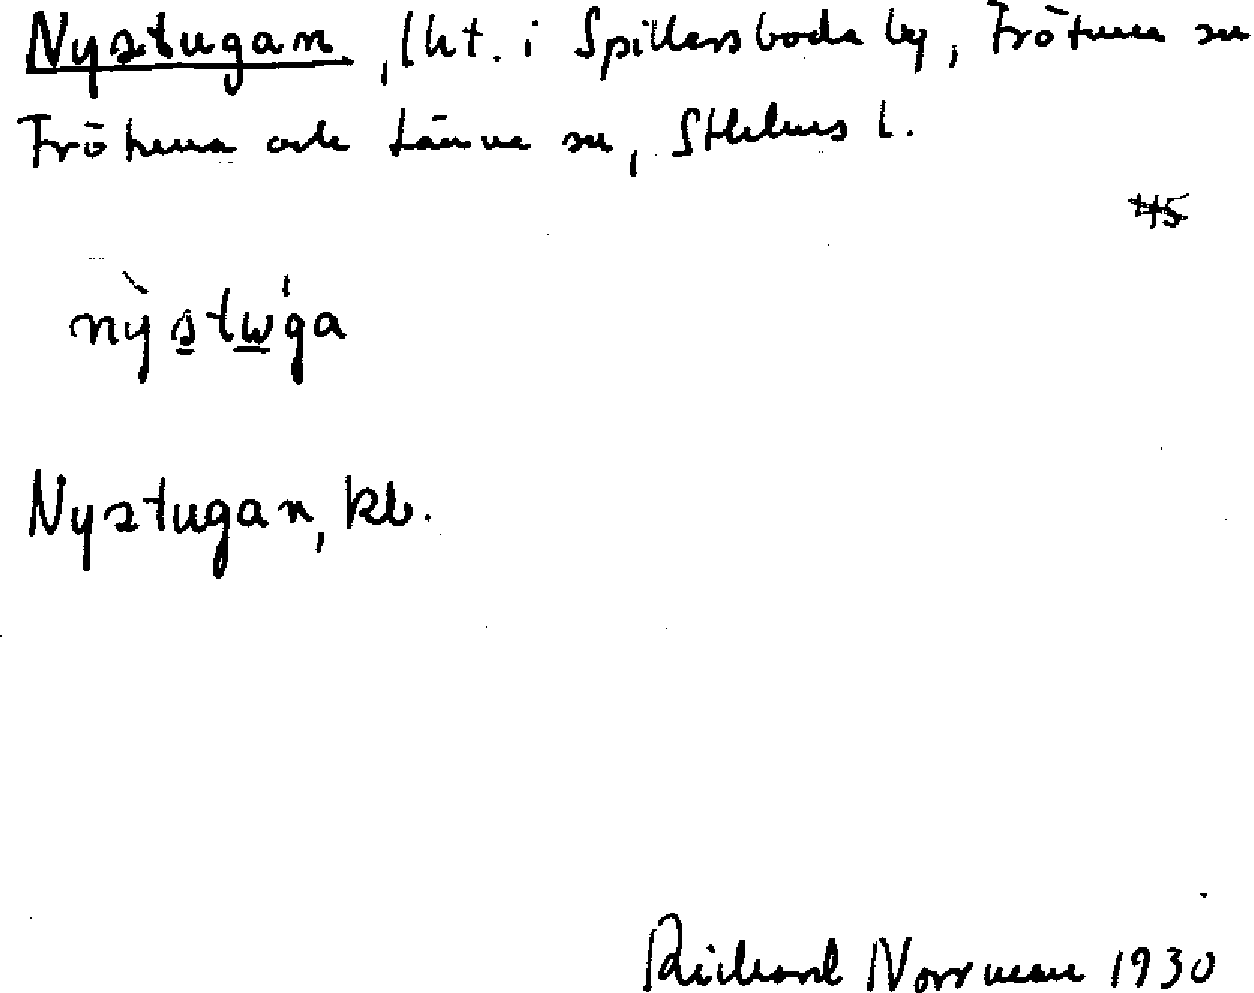 Nystugan, lht. i Spillersboda by, Frötuna sn
Frötuna och Länna sn, Sthlms l.
nỳstẉ́ga
Nystugan, kb.
Richard Norrman 1930